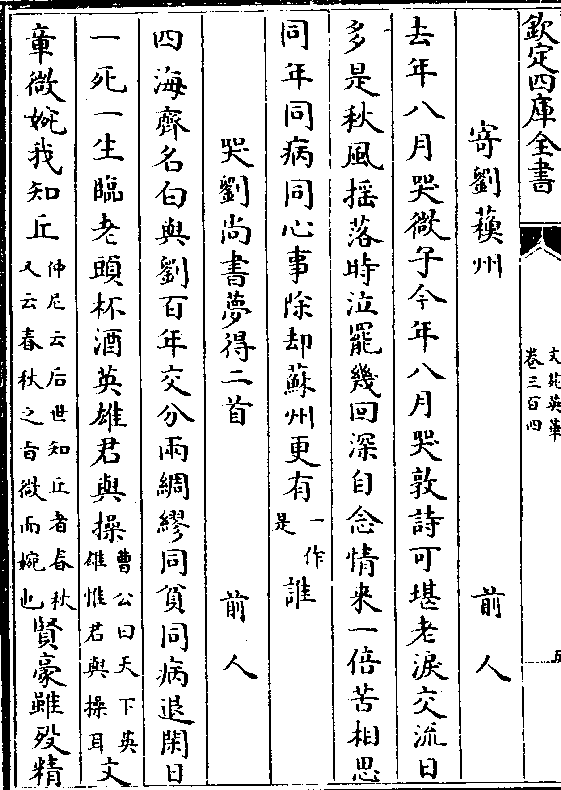 欽定四庫全書
文苑英華
卷三百四
寄劉蘓州
前人
去年八月哭微子今年八月哭敦詩可堪老淚交流日
多是秋風揺落時泣罷幾回深自念情來一倍苦相思
同年同病同心事除却蘇州更有一作是誰
哭劉尚書夢得二首
前人
四海齊名白與劉百年交分兩綢繆同貧同病退閑日
一死一生臨老頭杯酒英雄君與操曹公曰天下英雄惟君與操耳文
章微婉我知丘仲尼云后世知丘者春秋又云春秋之旨微而婉也賢豪雖歿精